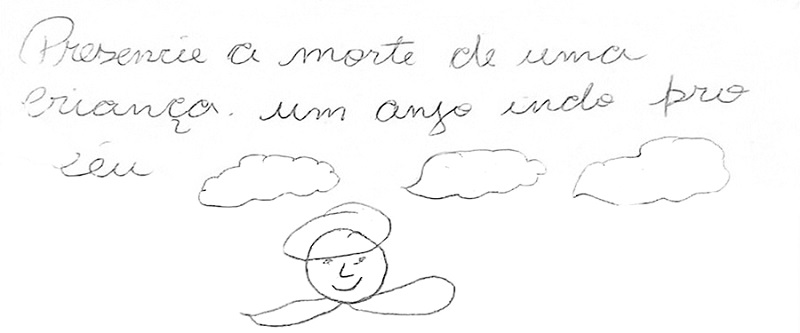 Presencie a morte de uma
criança. um anjo indo pro
séu